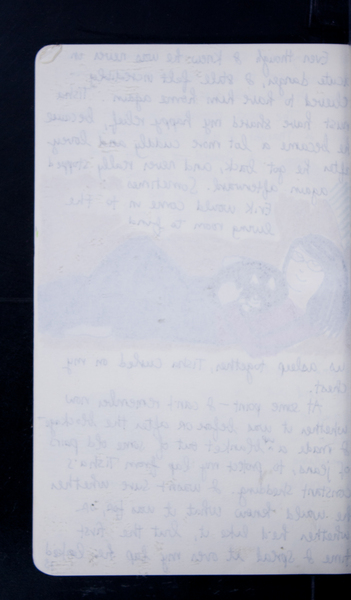 Even though I knew he was never in
acute danger, I still felt incredibly
relieved to have him home again. Tisha
must have shared my happy relief, because
he became a lot more cuddly and loving
after he got back, and never really stopped
again afterward. Sometimes
Erik would come in to the
living room to find
us asleep together, Tisha curled on my
chest.
At some point - I can't remember now
whether it was before or after the
I made a "blanket" out of some old pair
of jeans, to protect my lap from Tisha's
constant shedding. I wasn't sure whether
he would know what it was for, or
whether he'd like it, but the first
time I spread it over my lap he